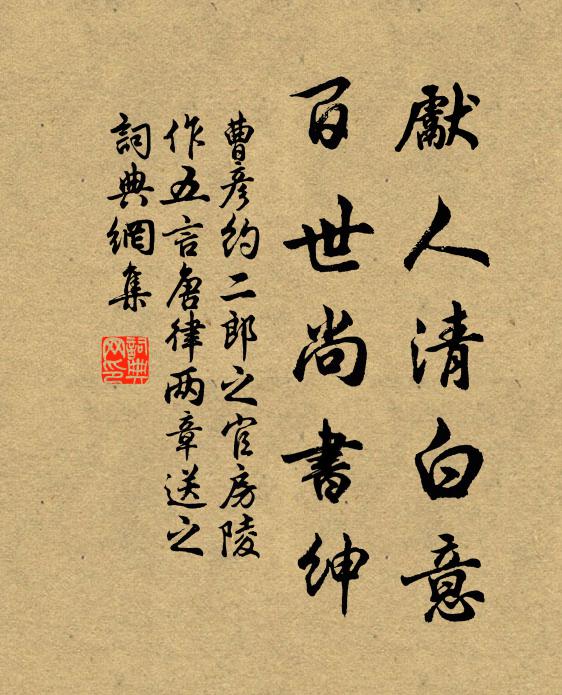 獻人清白意
百世尚書紳
曹彥約二郎之官房陵
作五言唐律两章送之
詞典網集
詞典网印